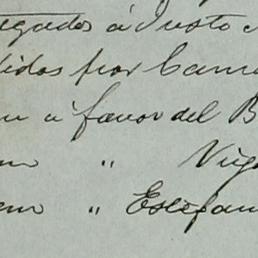 egados á Justo
didos por Cam
a favor del B
" Virg
em " Estefan